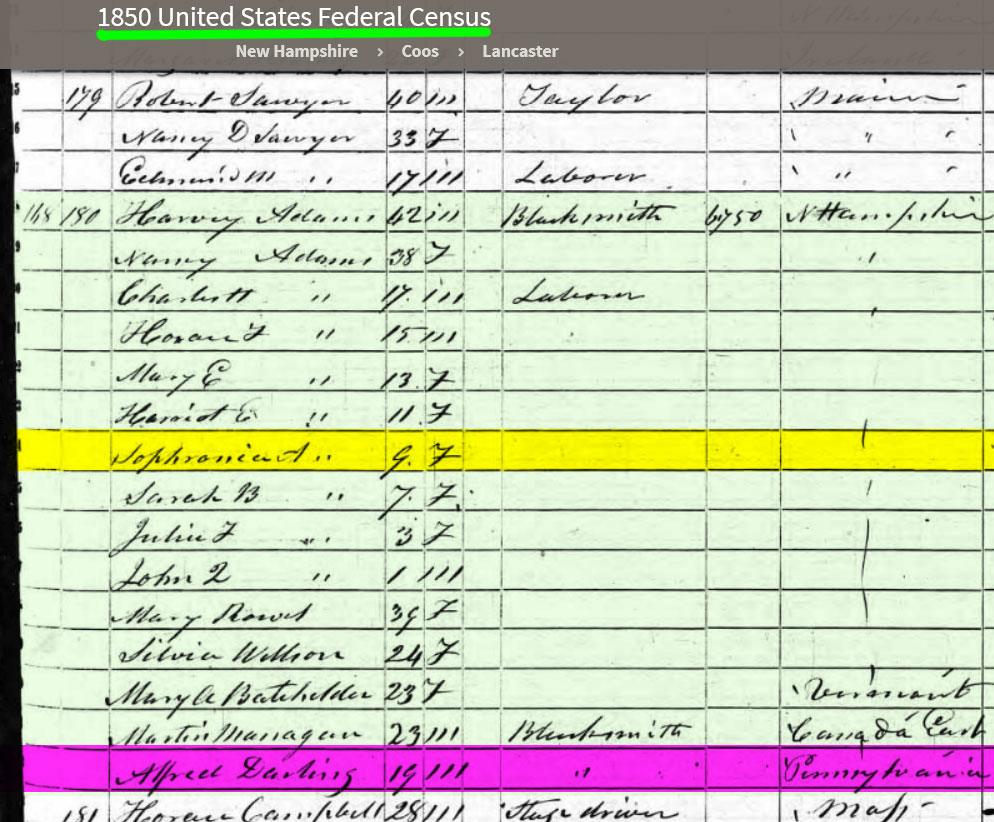 1850 United States Federal Census
New Hampshire › Coos › Lancaster
179 Robert Sawyer 40 M Taylor Maine
Nancy D Sawyer 33 F " "
Edmund M " 17 M Laborer " "
168 180 Harvey Adams 42 M Blacksmith 6750 N Hampshire
Nancy Adams 38 F "
Charles H " 17 M Laborer
Horace F " 15 M
Mary E " 13 F
Harriet E " 11 F
Sophronia A " 9 F
Sarah B " 7 F
Julia F " 3 F
John Q " 1 M
Mary 39 F
Silvia Willson 24 F
Mary A Batchelder 23 F Vermont
Martin Managan 23 M Blacksmith Canada East
Alfred Darling 19 M " Pennsylvania
181 Horace Campbell 28 M Stage driver Mass